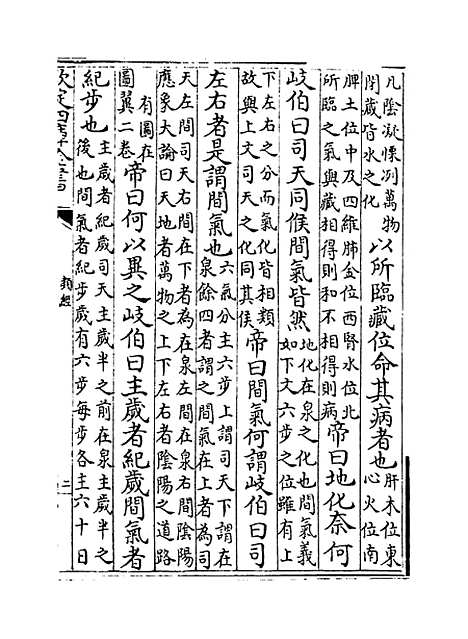 凡陰凝慄冽萬物
閉藏皆水之化
以所臨藏位命其病者也
肝木位東
心火位南
脾土位中及四維肺金位西腎水位北
所臨之氣與藏相得則和不相得則病
帝曰地化奈何
岐伯曰司天同候間氣皆然
地化在泉之化也間氣義
如下文六步之位雖有上
下左右之分而氣化皆相類
故與上文司天之化同其候
帝曰間氣何謂岐伯曰司
左右者是謂間氣也
六氣分主六步上謂司天下謂在
泉餘四者謂之間氣在上者為司
天左間司天右間在下者為在泉左間在泉右間陰陽
應象大論曰天地者萬物之上下左右者陰陽之道路
有圖在
圖翼二卷
帝曰何以異之岐伯曰主歲者紀歲間氣者
紀步也
主歲者紀歲司天主歲半之前在泉主歲半之
後也間氣者紀步歲有六步每步各主六十日
欽定四庫全書
類經